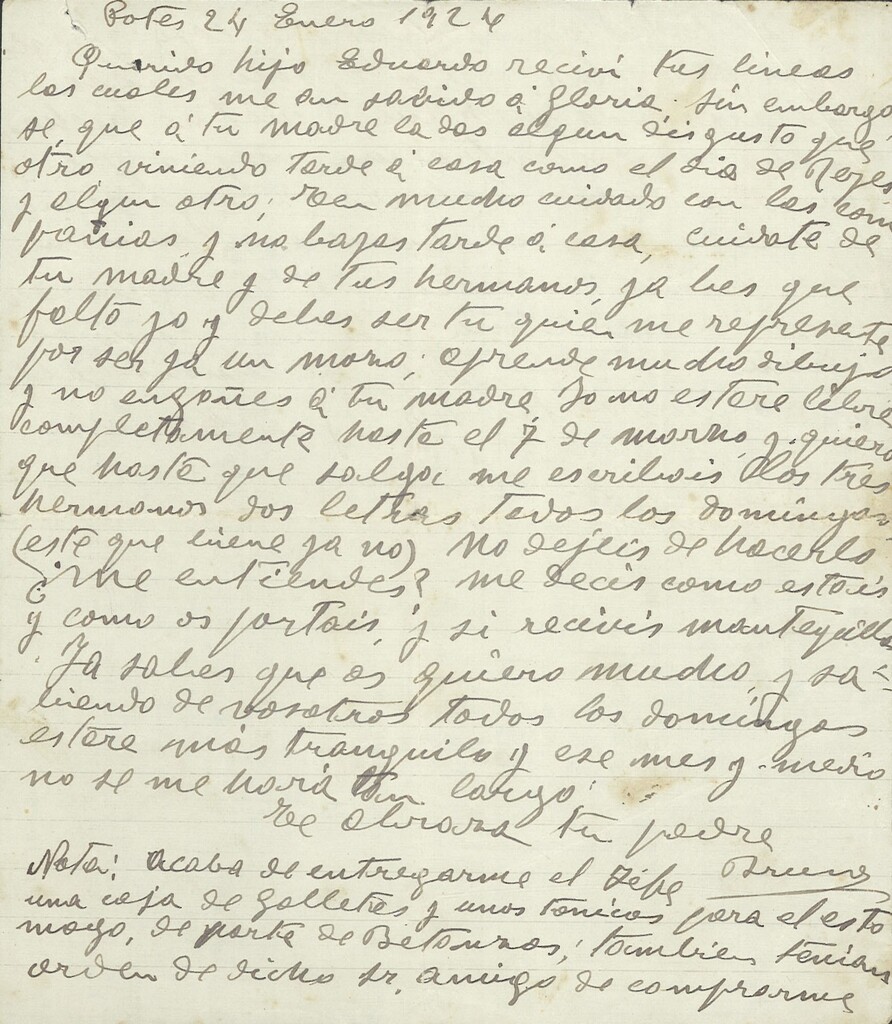 Potes 24 Enero 1924
Querido hijo Eduardo reciví tus lineas
las cuales me an savido á Gloria. Sin embargo
se, que á tu madre la das algun disgusto que
otro, viniendo tarde á casa como el dia de Reyes
y algun otro; Ten mucho cuidado con las com
pañias, y no bayas tarde á casa, cuidate de
tu madre y de tus hermanos, ya bes que
falto yo y debes ser tu quien me represente
por ser ya un mozo; aprende mucho dibujo
y no engañes á tu madre Yo no estare libre
completamente haste el 7 de marzo, y quiero
que haste que salga, me escribais los tres
hermanos dos letras todos los domingos
(este que biene ya no) No dejeis de hacerlo
¿me entiendes? me decis como estais
y como os portais, y si recivis mantequilla
Ya sabes que os quiero mucho, y sa-
biendo de vosotros todos los domingos
estare más tranquilo y ese mes y medio
no se me hará tan largo.
Te abraza tu padre
Bruno
Nota: Acaba de entregarme el Jefe
una caja de Galletas y unos tonicos para el esto
mago, de parte de Betanzos; tambien tenian
orden de dicho sr. amigo de comprarme